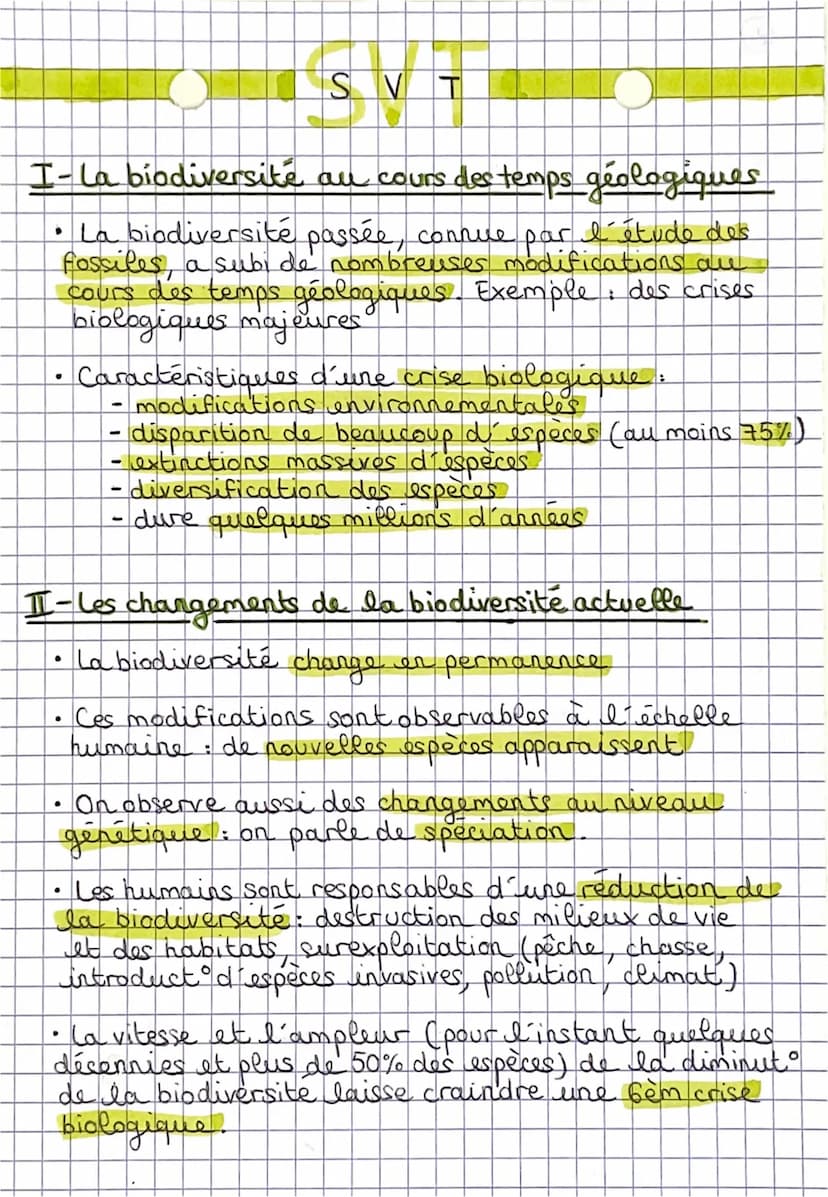 SVT
I - La biodiversité au cours des temps géologiques
• La biodiversité passée, connue par l'étude des
fossiles, a subi de nombreuses modifications au
cours des temps géologiques. Exemple : des crises
biologiques majeures
• Caractéristiques d'une crise biologique :
- modifications environnementales
- disparition de beaucoup d'espèces (au moins 75%)
- extinctions massives d'espèces
- diversification des espèces
- dure quelques millions d'années
II - Les changements de la biodiversité actuelle
• La biodiversité change en permanence
• Ces modifications sont observables à l'échelle
humaine : de nouvelles espèces apparaissent
• On observe aussi des changements au niveau
génétique : on parle de spéciation.
• Les humains sont responsables d'une réduction de
la biodiversité : destruction des milieux de vie
et des habitats, surexploitation (pêche, chasse,
introduct° d'espèces invasives, pollution, climat)
• La vitesse et l'ampleur (pour l'instant quelques
décennies et plus de 50% des espèces) de la diminut°
de la biodiversité laisse craindre une 6èm crise
biologique.